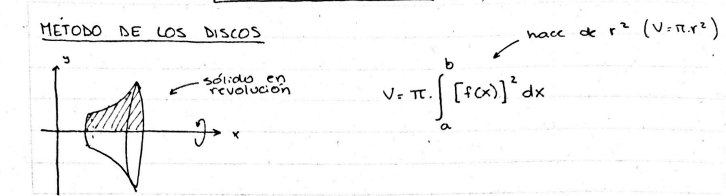 MÉTODO DE LOS DISCOS
hace de r² (V=π.r²)
y
sólido en
revolución
x
V= π. ∫ₐᵇ [f(x)]² dx